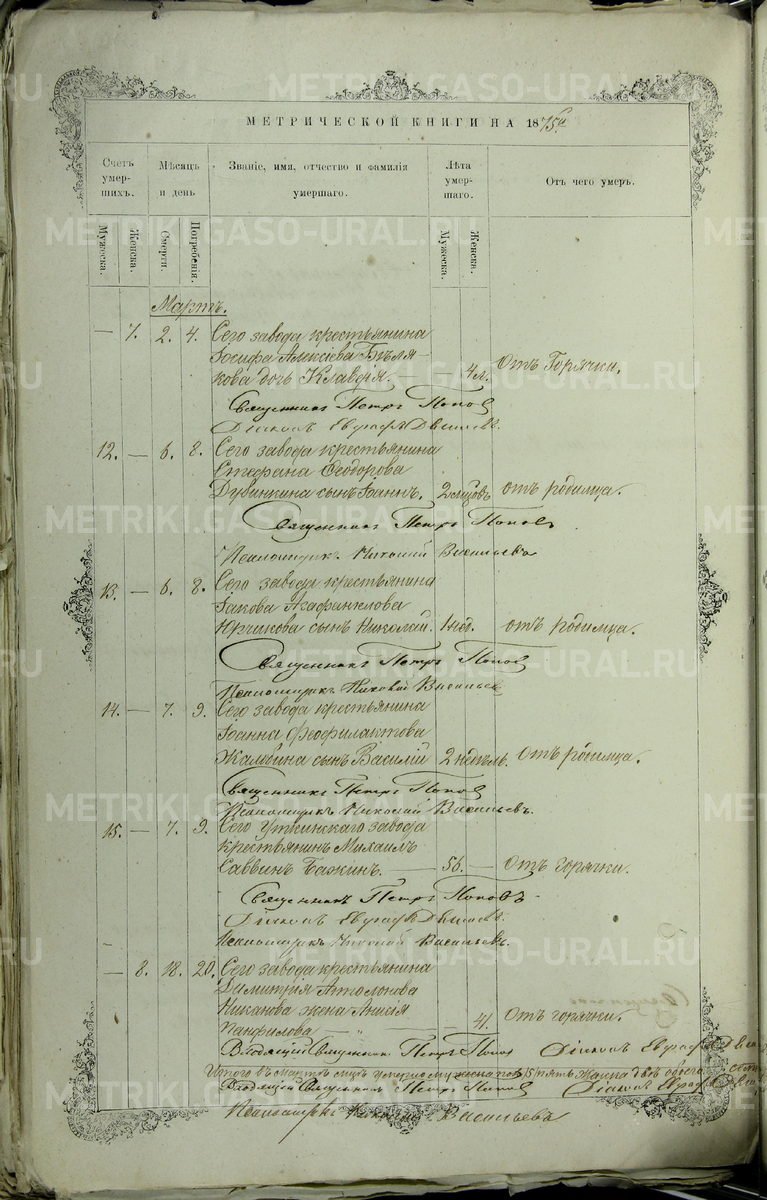 МЕТРИЧЕСКОЙ КНИГИ НА 1875 г.
Счетъ умер-шихъ.
Мѣсяцъ и день
Званіе, имя, отчество и фамилія умершаго.
Лѣта умер-шаго.
Отъ чего умеръ.
Мужеска.
Женска.
Смерти.
Погребенія.
Мужеска.
Женска.
Мартъ.
— 7. 2. 4. Сего завода крестьянина
Іосифа Алексіева Бѣля-
кова дочь Клавдія. 4 л. Отъ Горячки.
Священникъ Петръ Поповъ
Діаконъ Евграфъ
12. — 6. 8. Сего завода крестьянина
Стефана Ѳеодорова
Дубинкина сынъ Іоаннъ. 2 отъ родимца.
Священникъ Петръ Поповъ
Псаломщикъ Николай Васильевъ
13. — 6. 8. Сего завода крестьянина
Іакова Агафангелова
Юрчикова сынъ Николай. 1 нед. отъ родимца.
Священникъ Петръ Поповъ
Псаломщикъ Николай Васильевъ
14. — 7. 9. Сего завода крестьянина
Іоанна Феофилактова
сынъ Василій 2 недѣль. Отъ родимца.
Священникъ Петръ Поповъ
Псаломщикъ Николай Васильевъ.
15. — 7. 9. Сего Уткинскаго завода
крестьянинъ Михаилъ
Саввинъ Бажинъ. — 56. — Отъ горячки.
Священникъ Петръ Поповъ
Діаконъ Евграфъ
Псаломщикъ Николай Васильевъ.
— 8. 18. 20. Сего завода крестьянина
Димитрія
жена Анисія
Панфилова — 41. Отъ горячки.
Священникъ Петръ Поповъ Діаконъ Евграфъ
Итого въ мартѣ умерло
Священникъ Петръ Поповъ Діаконъ Евграфъ
Псаломщикъ Николай Васильевъ
METRIKI.GASO-URAL.RU